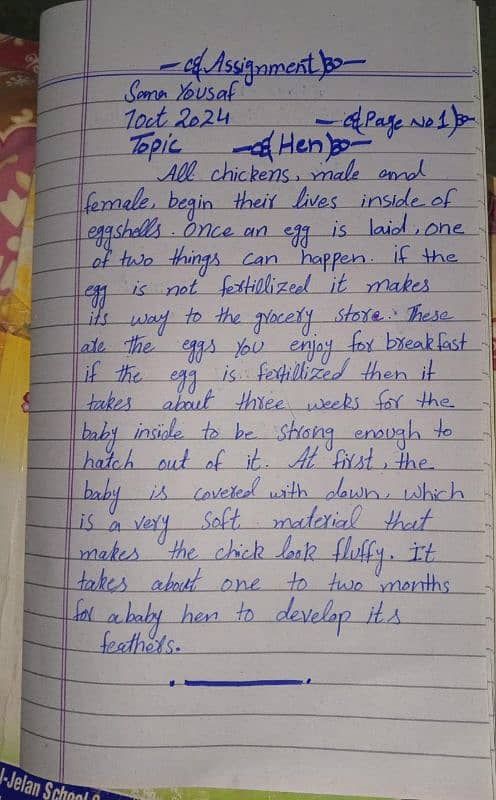 Assignment
Sama Yousaf
7 oct 2024
Page No 1
Topic Hen
All chickens, male and
female, begin their lives inside of
eggshells. Once an egg is laid, one
of two things can happen. if the
egg is not fertillized it makes
its way to the grocery store. These
are the eggs you enjoy for breakfast
if the egg is fertillized then it
takes about three weeks for the
baby inside to be strong enough to
hatch out of it. At first, the
baby is covered with down. which
is a very soft material that
makes the chick look fluffy. It
takes about one to two months
for a baby hen to develop its
feathers.
l-Jelan School